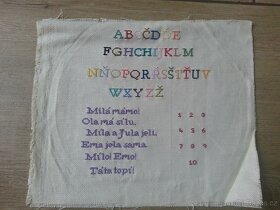 ABCČDĎE
FGHCHIJKLM
NŇOPQRŘSŠTŤUV
WXYZŽ
Milá mámo!
Ola má sílu.
Míla a Jula jeli.
Ema jela sama.
Mílo! Emo!
Táta topí!
1 2 3
4 5 6
7 8 9
10